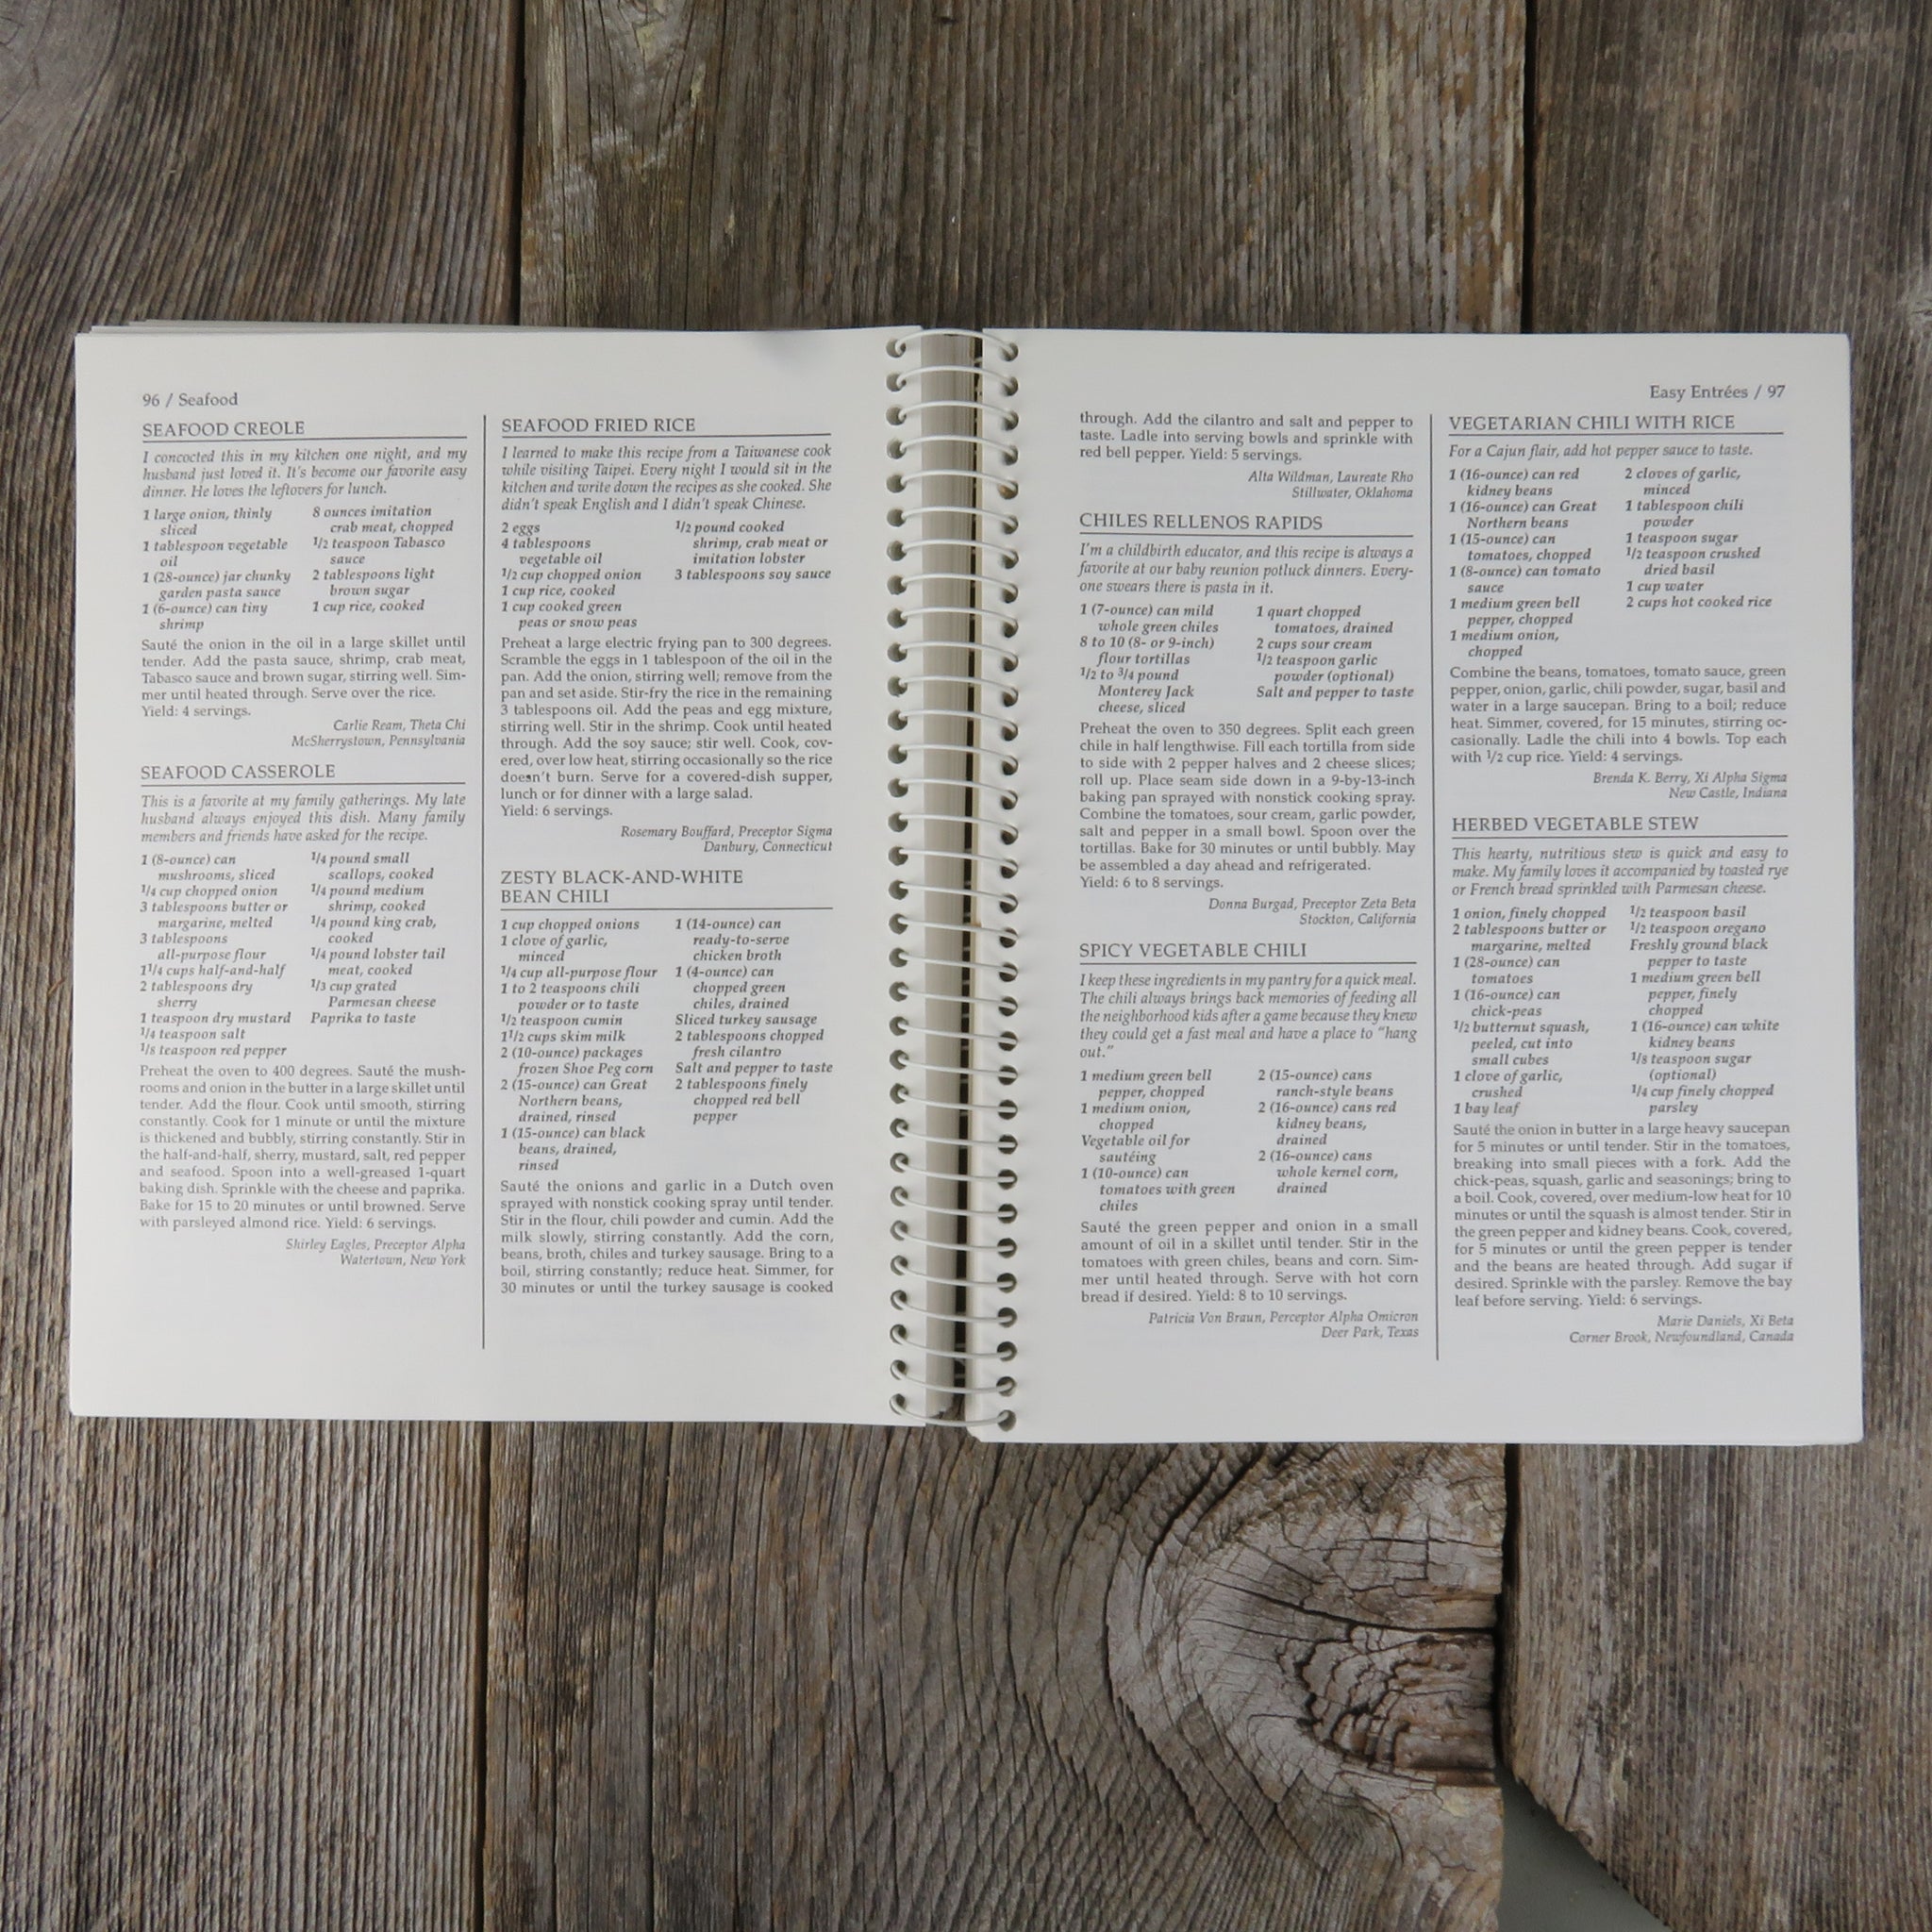 96 / Seafood
SEAFOOD CREOLE
I concocted this in my kitchen one night, and my
husband just loved it. It's become our favorite easy
dinner. He loves the leftovers for lunch.
1 large onion, thinly
sliced
1 tablespoon vegetable
oil
1 (28-ounce) jar chunky
garden pasta sauce
1 (6-ounce) can tiny
shrimp
8 ounces imitation
crab meat, chopped
1/2 teaspoon Tabasco
sauce
2 tablespoons light
brown sugar
1 cup rice, cooked
Sauté the onion in the oil in a large skillet until
tender. Add the pasta sauce, shrimp, crab meat,
Tabasco sauce and brown sugar, stirring well. Sim-
mer until heated through. Serve over the rice.
Yield: 4 servings.
Carlie Ream, Theta Chi
McSherrystown, Pennsylvania
SEAFOOD CASSEROLE
This is a favorite at my family gatherings. My late
husband always enjoyed this dish. Many family
members and friends have asked for the recipe.
1 (8-ounce) can
mushrooms, sliced
1/4 cup chopped onion
3 tablespoons butter or
margarine, melted
3 tablespoons
all-purpose flour
1 1/4 cups half-and-half
2 tablespoons dry
sherry
1 teaspoon dry mustard
1/4 teaspoon salt
1/8 teaspoon red pepper
1/4 pound small
scallops, cooked
1/4 pound medium
shrimp, cooked
1/4 pound king crab,
cooked
1/4 pound lobster tail
meat, cooked
1/3 cup grated
Parmesan cheese
Paprika to taste
Preheat the oven to 400 degrees. Sauté the mush-
rooms and onion in the butter in a large skillet until
tender. Add the flour. Cook until smooth, stirring
constantly. Cook for 1 minute or until the mixture
is thickened and bubbly, stirring constantly. Stir in
the half-and-half, sherry, mustard, salt, red pepper
and seafood. Spoon into a well-greased 1-quart
baking dish. Sprinkle with the cheese and paprika.
Bake for 15 to 20 minutes or until browned. Serve
with parsleyed almond rice. Yield: 6 servings.
Shirley Eagles, Preceptor Alpha
Watertown, New York
SEAFOOD FRIED RICE
I learned to make this recipe from a Taiwanese cook
while visiting Taipei. Every night I would sit in the
kitchen and write down the recipes as she cooked. She
didn't speak English and I didn't speak Chinese.
2 eggs
4 tablespoons
vegetable oil
1/2 cup chopped onion
1 cup rice, cooked
1 cup cooked green
peas or snow peas
1/2 pound cooked
shrimp, crab meat or
imitation lobster
3 tablespoons soy sauce
Preheat a large electric frying pan to 300 degrees.
Scramble the eggs in 1 tablespoon of the oil in the
pan. Add the onion, stirring well; remove from the
pan and set aside. Stir-fry the rice in the remaining
3 tablespoons oil. Add the peas and egg mixture,
stirring well. Stir in the shrimp. Cook until heated
through. Add the soy sauce; stir well. Cook, cov-
ered, over low heat, stirring occasionally so the rice
doesn't burn. Serve for a covered-dish supper,
lunch or for dinner with a large salad.
Yield: 6 servings.
Rosemary Bouffard, Preceptor Sigma
Danbury, Connecticut
ZESTY BLACK-AND-WHITE
BEAN CHILI
1 cup chopped onions
1 clove of garlic,
minced
1/4 cup all-purpose flour
1 to 2 teaspoons chili
powder or to taste
1/2 teaspoon cumin
1 1/2 cups skim milk
2 (10-ounce) packages
frozen Shoe Peg corn
2 (15-ounce) can Great
Northern beans,
drained, rinsed
1 (15-ounce) can black
beans, drained,
rinsed
1 (14-ounce) can
ready-to-serve
chicken broth
1 (4-ounce) can
chopped green
chiles, drained
Sliced turkey sausage
2 tablespoons chopped
fresh cilantro
Salt and pepper to taste
2 tablespoons finely
chopped red bell
pepper
Sauté the onions and garlic in a Dutch oven
sprayed with nonstick cooking spray until tender.
Stir in the flour, chili powder and cumin. Add the
milk slowly, stirring constantly. Add the corn,
beans, broth, chiles and turkey sausage. Bring to a
boil, stirring constantly; reduce heat. Simmer, for
30 minutes or until the turkey sausage is cooked
Easy Entrées / 97
through. Add the cilantro and salt and pepper to
taste. Ladle into serving bowls and sprinkle with
red bell pepper. Yield: 5 servings.
Alta Wildman, Laureate Rho
Stillwater, Oklahoma
CHILES RELLENOS RAPIDS
I'm a childbirth educator, and this recipe is always a
favorite at our baby reunion potluck dinners. Every-
one swears there is pasta in it.
1 (7-ounce) can mild
whole green chiles
8 to 10 (8- or 9-inch)
flour tortillas
1/2 to 3/4 pound
Monterey Jack
cheese, sliced
1 quart chopped
tomatoes, drained
2 cups sour cream
1/2 teaspoon garlic
powder (optional)
Salt and pepper to taste
Preheat the oven to 350 degrees. Split each green
chile in half lengthwise. Fill each tortilla from side
to side with 2 pepper halves and 2 cheese slices;
roll up. Place seam side down in a 9-by-13-inch
baking pan sprayed with nonstick cooking spray.
Combine the tomatoes, sour cream, garlic powder,
salt and pepper in a small bowl. Spoon over the
tortillas. Bake for 30 minutes or until bubbly. May
be assembled a day ahead and refrigerated.
Yield: 6 to 8 servings.
Donna Burgad, Preceptor Zeta Beta
Stockton, California
SPICY VEGETABLE CHILI
I keep these ingredients in my pantry for a quick meal.
The chili always brings back memories of feeding all
the neighborhood kids after a game because they knew
they could get a fast meal and have a place to "hang
out."
1 medium green bell
pepper, chopped
1 medium onion,
chopped
Vegetable oil for
sautéing
1 (10-ounce) can
tomatoes with green
chiles
2 (15-ounce) cans
ranch-style beans
2 (16-ounce) cans red
kidney beans,
drained
2 (16-ounce) cans
whole kernel corn,
drained
Sauté the green pepper and onion in a small
amount of oil in a skillet until tender. Stir in the
tomatoes with green chiles, beans and corn. Sim-
mer until heated through. Serve with hot corn
bread if desired. Yield: 8 to 10 servings.
Patricia Von Braun, Perceptor Alpha Omicron
Deer Park, Texas
VEGETARIAN CHILI WITH RICE
For a Cajun flair, add hot pepper sauce to taste.
1 (16-ounce) can red
kidney beans
1 (16-ounce) can Great
Northern beans
1 (15-ounce) can
tomatoes, chopped
1 (8-ounce) can tomato
sauce
1 medium green bell
pepper, chopped
1 medium onion,
chopped
2 cloves of garlic,
minced
1 tablespoon chili
powder
1 teaspoon sugar
1/2 teaspoon crushed
dried basil
1 cup water
2 cups hot cooked rice
Combine the beans, tomatoes, tomato sauce, green
pepper, onion, garlic, chili powder, sugar, basil and
water in a large saucepan. Bring to a boil; reduce
heat. Simmer, covered, for 15 minutes, stirring oc-
casionally. Ladle the chili into 4 bowls. Top each
with 1/2 cup rice. Yield: 4 servings.
Brenda K. Berry, Xi Alpha Sigma
New Castle, Indiana
HERBED VEGETABLE STEW
This hearty, nutritious stew is quick and easy to
make. My family loves it accompanied by toasted rye
or French bread sprinkled with Parmesan cheese.
1 onion, finely chopped
2 tablespoons butter or
margarine, melted
1 (28-ounce) can
tomatoes
1 (16-ounce) can
chick-peas
1/2 butternut squash,
peeled, cut into
small cubes
1 clove of garlic,
crushed
1 bay leaf
1/2 teaspoon basil
1/2 teaspoon oregano
Freshly ground black
pepper to taste
1 medium green bell
pepper, finely
chopped
1 (16-ounce) can white
kidney beans
1/8 teaspoon sugar
(optional)
1/4 cup finely chopped
parsley
Sauté the onion in butter in a large heavy saucepan
for 5 minutes or until tender. Stir in the tomatoes,
breaking into small pieces with a fork. Add the
chick-peas, squash, garlic and seasonings; bring to
a boil. Cook, covered, over medium-low heat for 10
minutes or until the squash is almost tender. Stir in
the green pepper and kidney beans. Cook, covered,
for 5 minutes or until the green pepper is tender
and the beans are heated through. Add sugar if
desired. Sprinkle with the parsley. Remove the bay
leaf before serving. Yield: 6 servings.
Marie Daniels, Xi Beta
Corner Brook, Newfoundland, Canada